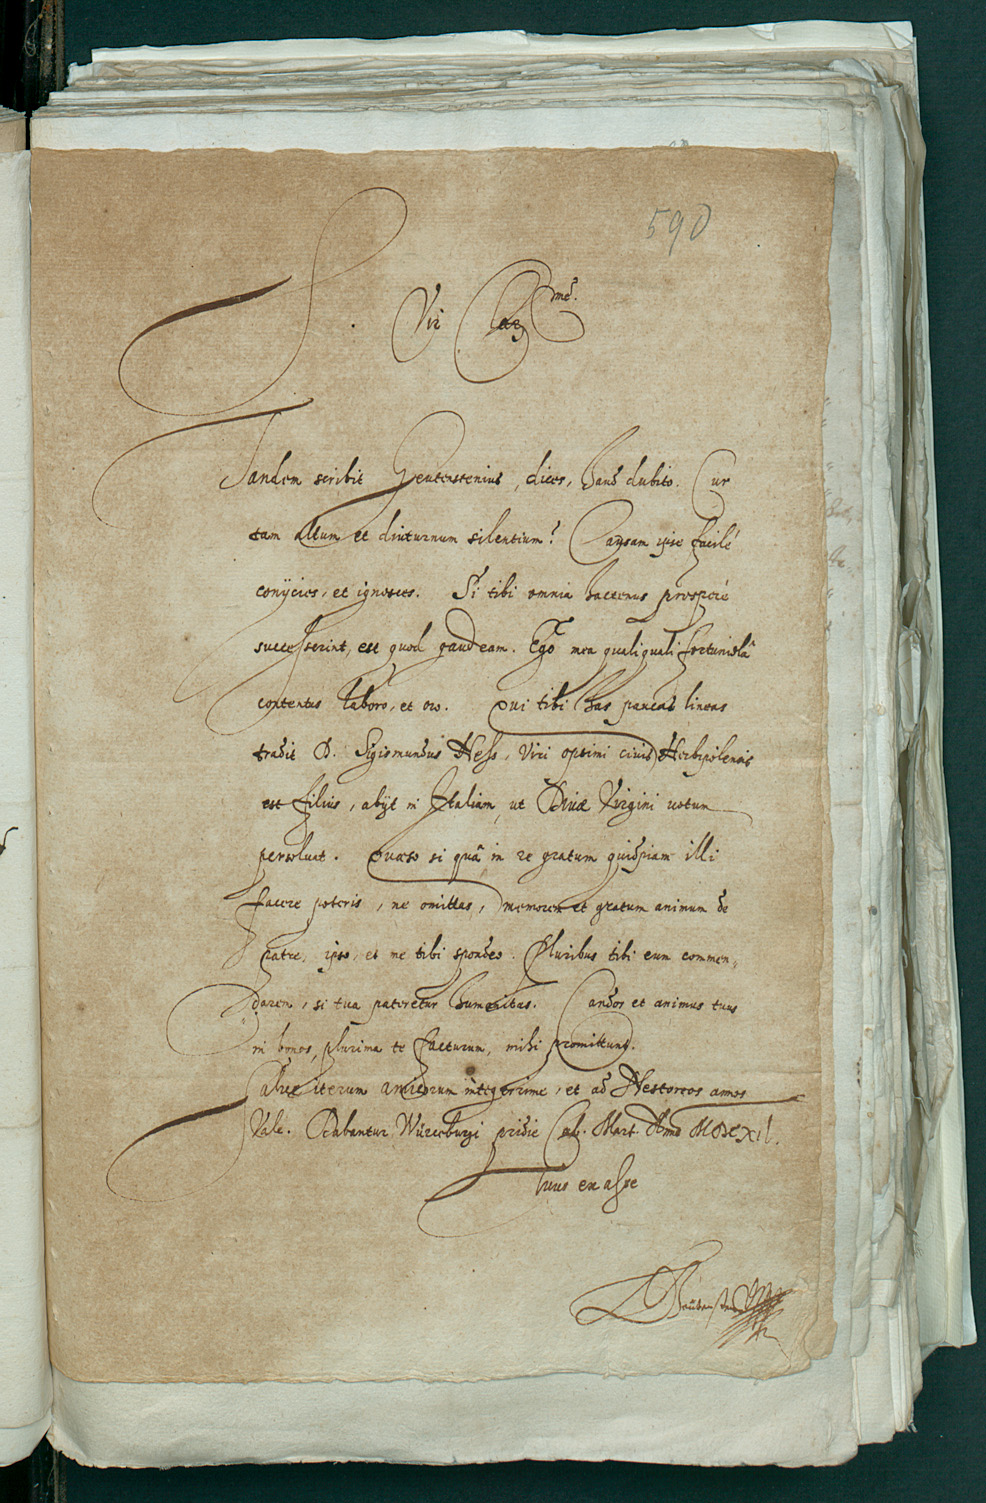 590
S.
Vir Clar.me.
Tandem scribit Geuterstenius, dices, haud dubito. Cur
tam altum et diuturnum silentium? Causam ipse facilè
conÿcies, et ignosces. Si tibi omnia hactenus prosperè
successerint, est quod gaudeam. Ego mea qualiquali fortuniolâ
contentus laboro, et oro. Qui tibi has paucas lineas
tradit D. Sigismundus Hess, Viri optimi civis Herbipolensis
est filius, abÿt in Italiam, ut Divæ Virgini votum
persolvat. Quæso si quâ in re gratum quidpiam illi
facere poteris, ne omittas, memorem et gratum animum de
patre, ipso, et me tibi spondeo. Pluribus tibi eum commen,,
darem, si tua pateretur humanitas. Candor et animus tuus
in bonos, plurima te facturum, mihi promittunt.
Salve iterum amicorum integerrime, et ad Nestoreos annos
Vale. Dabantur Würceburgi pridie Cal. Mart. Anno MDCXII.
Tuus ex asse